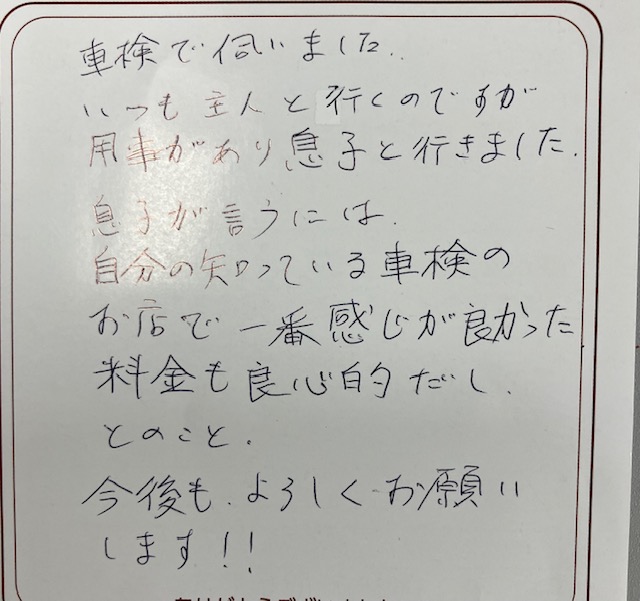 車検で伺いました.
いつも主人と行くのですが
用事があり息子と行きました.
息子が言うには.
自分の知っている車検の
お店で一番感じが良かった
料金も良心的だし.
とのこと.
今後も.よろしくお願い
します!!